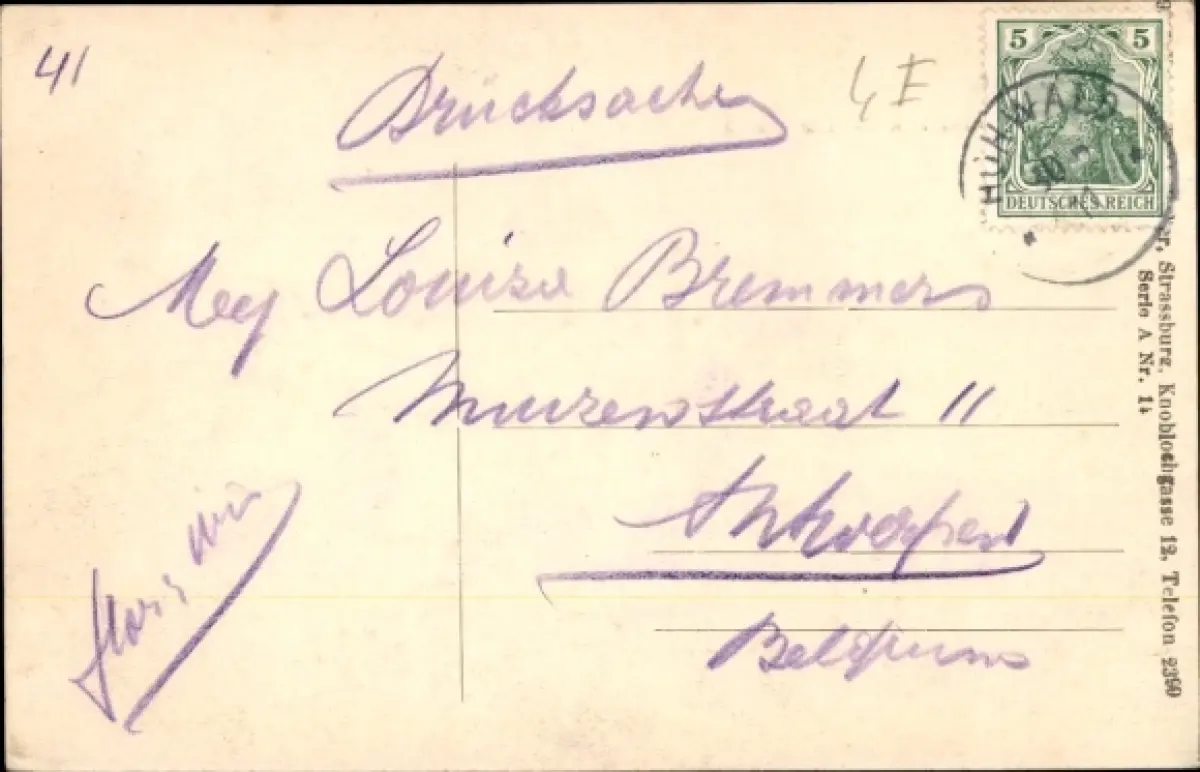 41
Drucksache
5 5
DEUTSCHES REICH
HÜHWALD
Mej Louisa Bremmers
Muizenstraat 11
Antwerpen
Belgium
Strassburg, Knoblochgasse 12, Telefon 2390
Serie A Nr. 14